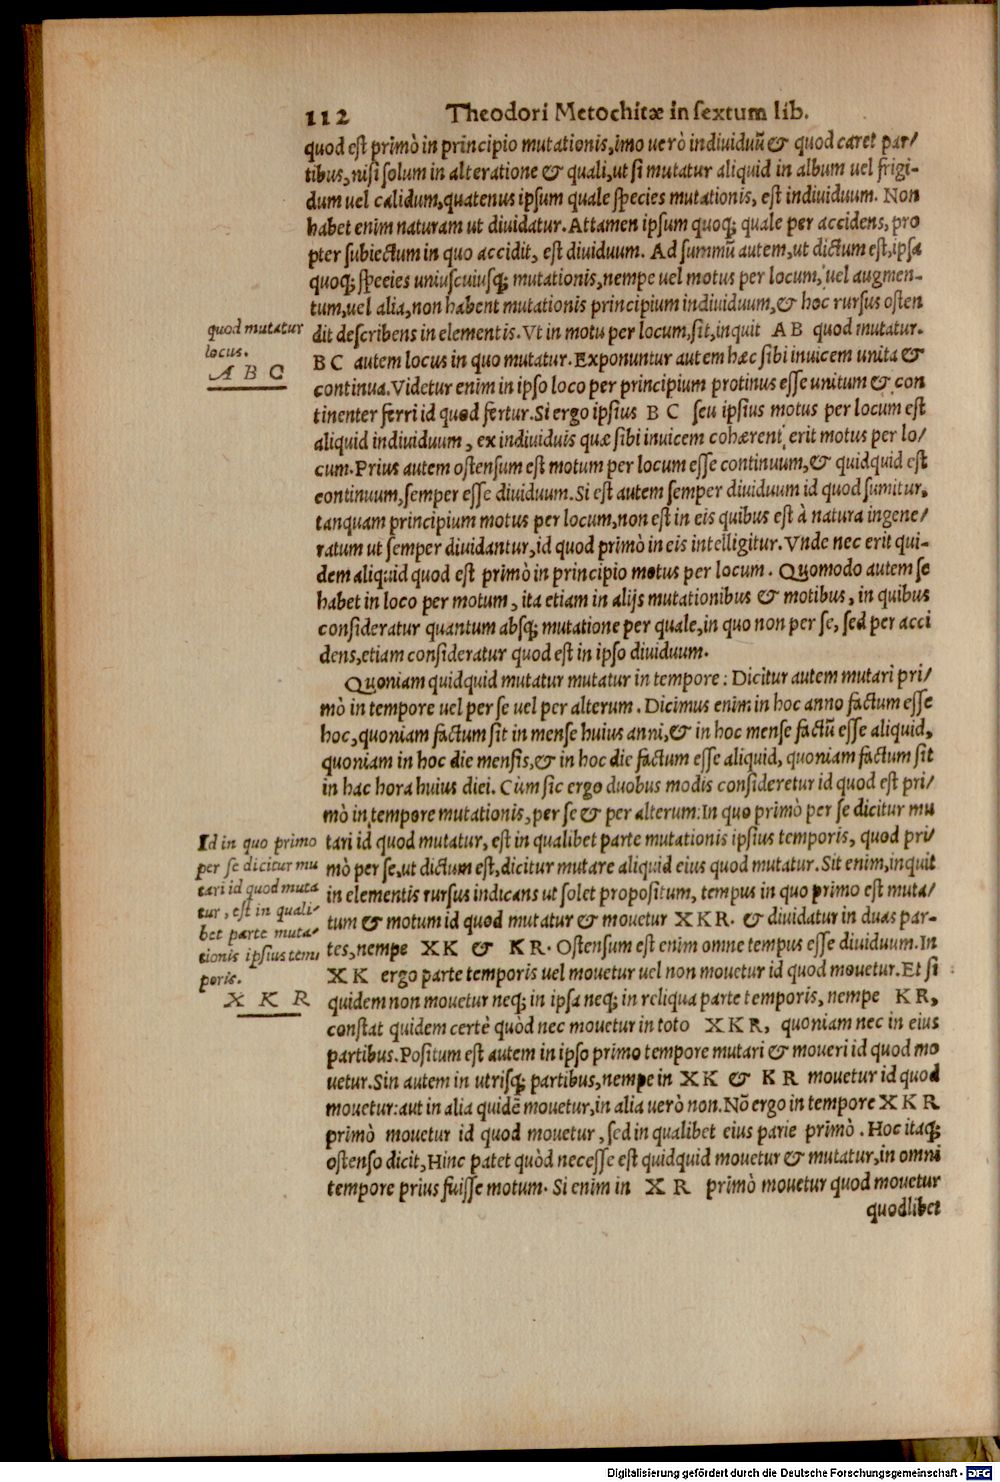 112 Theodori Metochitæ in sextum lib.
quod est primò in principio mutationis, imo uerò indiuiduũ & quod caret par/
tibus, nisi solum in alteratione & quali, ut si mutatur aliquid in album uel frigi-
dum uel calidum, quatenus ipsum quale species mutationis, est indiuiduum. Non
habet enim naturam ut diuidatur. Attamen ipsum quoq; quale per accidens, pro
pter subiectum in quo accidit, est diuiduum. Ad summũ autem, ut dictum est, ipsa
quoq; species uniuscuiusq; mutationis, nempe uel motus per locum, uel augmen-
tum, uel alia, non habent mutationis principium indiuiduum, & hoc rursus osten
dit describens in elementis. Vt in motu per locum, sit, inquit A B quod mutatur.
B C autem locus in quo mutatur. Exponuntur autem hæc sibi inuicem unita &
continua. Videtur enim in ipso loco per principium protinus esse unitum & con
tinenter ferri id quod fertur. Si ergo ipsius B C seu ipsius motus per locum est
aliquid indiuiduum, ex indiuiduis quæ sibi inuicem cohærent erit motus per lo/
cum. Prius autem ostensum est motum per locum esse continuum, & quidquid est
continuum, semper esse diuiduum. Si est autem semper diuiduum id quod sumitur,
tanquam principium motus per locum, non est in eis quibus est à natura ingene/
ratum ut semper diuidantur, id quod primò in eis intelligitur. Vnde nec erit qui-
dem aliquid quod est primò in principio motus per locum. Quomodo autem se
habet in loco per motum, ita etiam in alijs mutationibus & motibus, in quibus
consideratur quantum absq; mutatione per quale, in quo non per se, sed per acci
dens, etiam consideratur quod est in ipso diuiduum.
Quoniam quidquid mutatur mutatur in tempore: Dicitur autem mutari pri/
mò in tempore uel per se uel per alterum. Dicimus enim in hoc anno factum esse
hoc, quoniam factum sit in mense huius anni, & in hoc mense factũ esse aliquid,
quoniam in hoc die mensis, & in hoc die factum esse aliquid, quoniam factum sit
in hac hora huius diei. Cùm sic ergo duobus modis consideretur id quod est pri/
mò in tempore mutationis, per se & per alterum: In quo primò per se dicitur mu
tari id quod mutatur, est in qualibet parte mutationis ipsius temporis, quod pri/
mò per se, ut dictum est, dicitur mutare aliquid eius quod mutatur. Sit enim, inquit
in elementis rursus indicans ut solet propositum, tempus in quo primo est muta/
tum & motum id quod mutatur & mouetur X K R. & diuidatur in duas par-
tes, nempe X K & K R. Ostensum est enim omne tempus esse diuiduum. In
X K ergo parte temporis uel mouetur uel non mouetur id quod mouetur. Et si
quidem non mouetur neq; in ipsa neq; in reliqua parte temporis, nempe K R,
constat quidem certè quòd nec mouetur in toto X K R, quoniam nec in eius
partibus. Positum est autem in ipso primo tempore mutari & moueri id quod mo
uetur. Sin autem in utrisq; partibus, nempe in X K & K R mouetur id quod
mouetur: aut in alia quidẽ mouetur, in alia uerò non. Nõ ergo in tempore X K R
primò mouetur id quod mouetur, sed in qualibet eius parte primò. Hoc itaq;
ostenso dicit, Hinc patet quòd necesse est quidquid mouetur & mutatur, in omni
tempore prius fuisse motum. Si enim in X R primò mouetur quod mouetur
quodlibet
quod mutatur
locus.
A B C
Id in quo primo
per se dicitur mu
tari id quod muta
tur, est in quali/
bet parte muta/
tionis ipsius tem
poris.
X K R
Digitalisierung gefördert durch die Deutsche Forschungsgemeinschaft - DFG